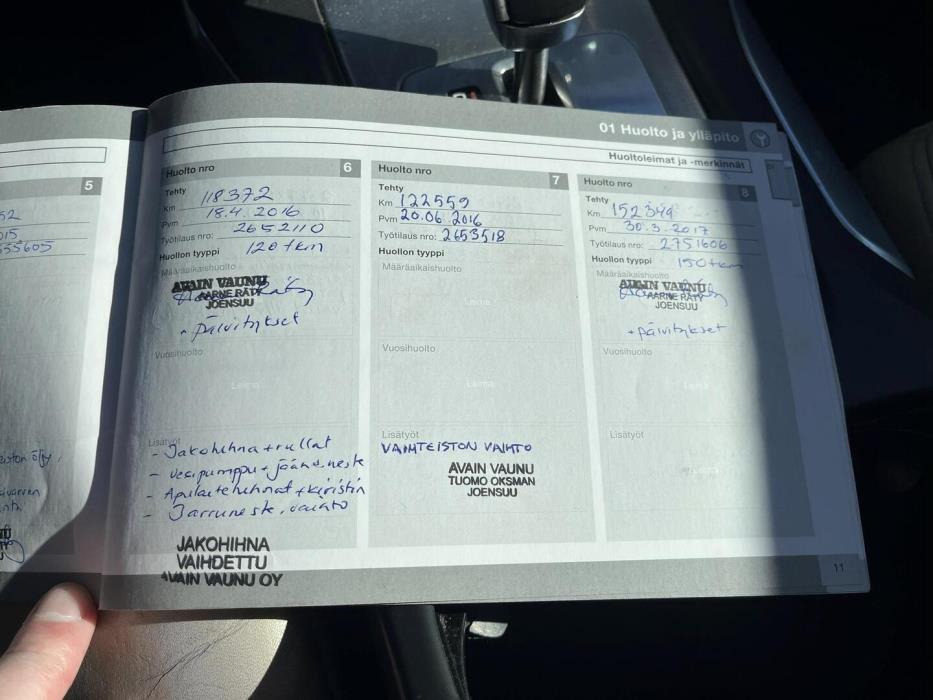 01 Huolto ja ylläpito
Huoltoleimat ja -merkinnät
5
52
015
55605
Huolto nro 6
Tehty
Km 118372
Pvm 18.4.2016
Työtilaus nro: 2652110
Huollon tyyppi 120 tkm
Määräaikaishuolto
AVAIN VAUNU
AARNE RÄTY
JOENSUU
+ päivitykset
Vuosihuolto
Leima
Lisätyöt
- Jakohihna + rullat
- vesipumppu + jäähd.neste
- Apulaitehihnat + kiristin
- Jarruneste.vaihto
JAKOHIHNA
VAIHDETTU
AVAIN VAUNU OY
Huolto nro 7
Tehty
Km 122559
Pvm 20.06.2016
Työtilaus nro: 2653518
Huollon tyyppi
Määräaikaishuolto
Leima
Vuosihuolto
Leima
Lisätyöt
VAIHTEISTON VAIHTO
AVAIN VAUNU
TUOMO OKSMAN
JOENSUU
Huolto nro 8
Tehty
Km 152349
Pvm 30.3.2017
Työtilaus nro: 2751606
Huollon tyyppi 150 tkm
Määräaikaishuolto
AVAIN VAUNU
AARNE RÄTY
JOENSUU
+ päivitykset
Vuosihuolto
Leima
Lisätyöt
Leima
11